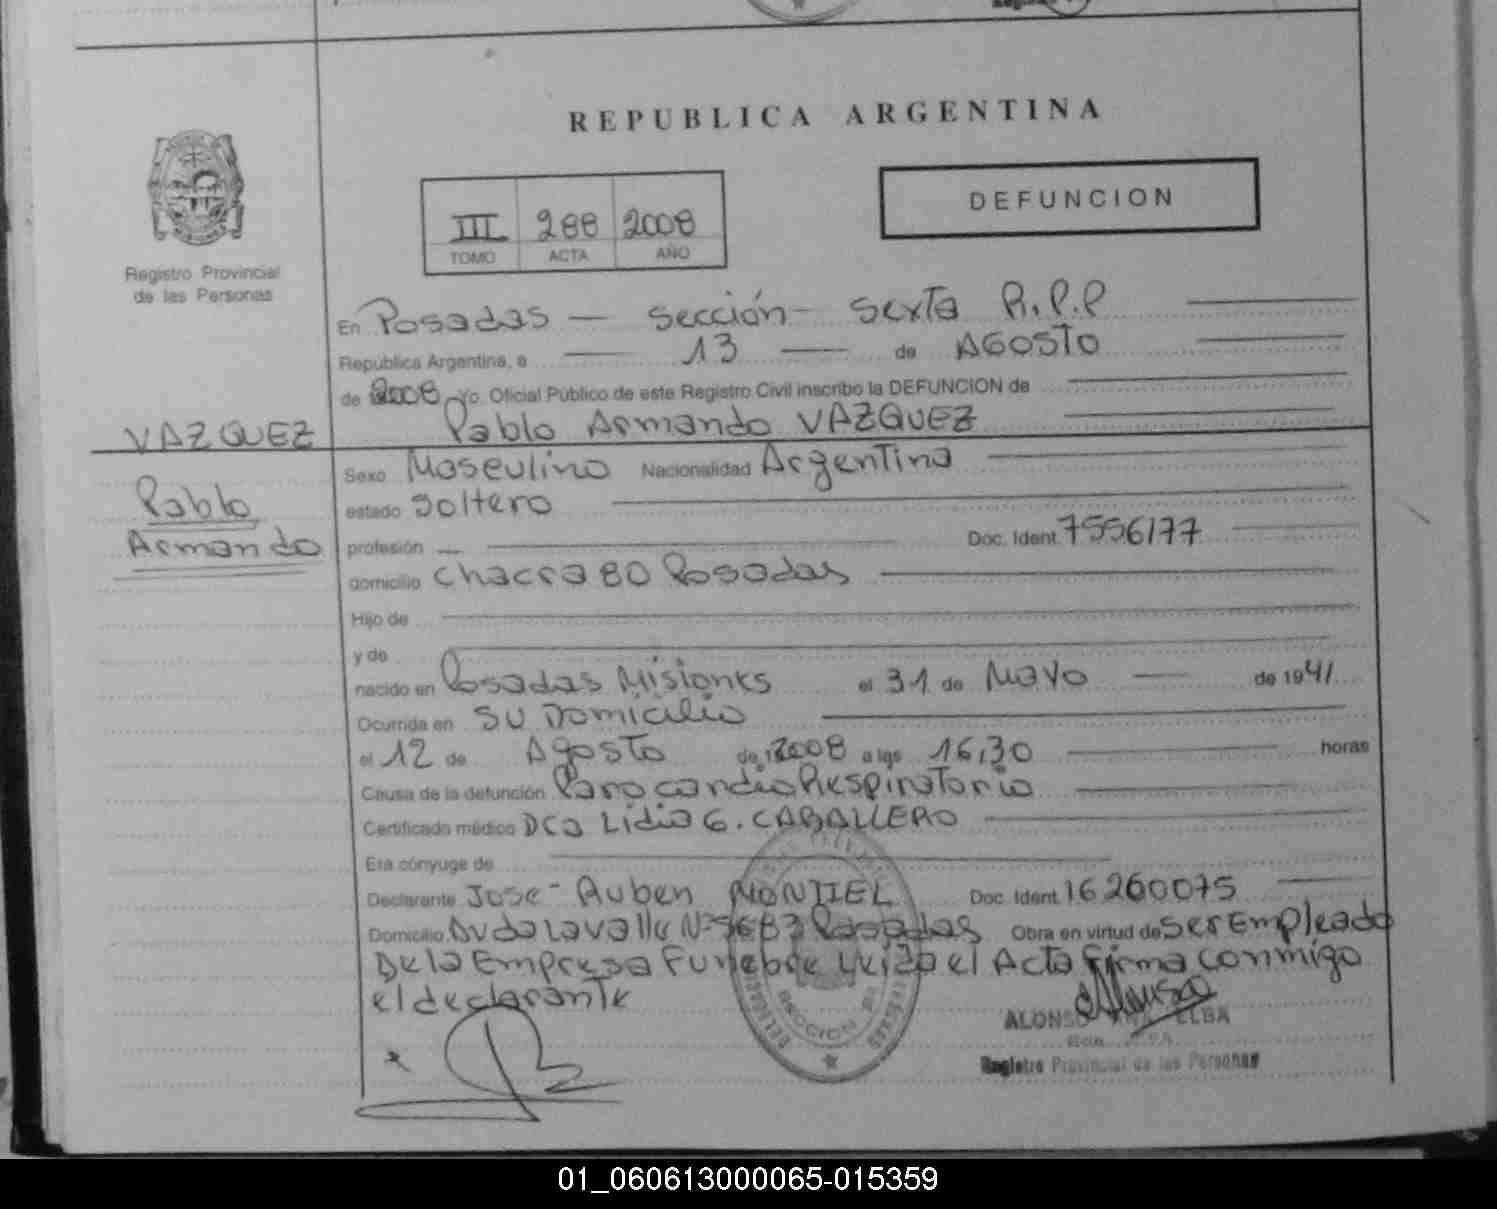 REPUBLICA ARGENTINA
DEFUNCION
III 288 2008
TOMO ACTA AÑO
Registro Provincial
de las Personas
En Posadas - sección - sexta R.P.P
República Argentina, a 13 de AGOSTO
de 2008 Yo. Oficial Público de este Registro Civil inscribo la DEFUNCION de
Pablo Armando VAZQUEZ
VAZQUEZ
Pablo
Armando
Sexo Masculino Nacionalidad Argentina
estado soltero
profesión — Doc. Ident. 7556177
domicilio chacra 80 Posadas
Hijo de
y de
nacido en Posadas Misiones el 31 de Mayo de 1941
Ocurrida en su Domicilio
el 12 de Agosto de 2008 a las 16,30 horas
Causa de la defunción Paro cardio Respiratorio
Certificado médico Dra Lidia G. CABALLERO
Era cónyuge de
Declarante Jose Ruben MONTIEL Doc. Ident. 16260075
Domicilio Avda Lavalle Nº Posadas Obra en virtud de ser Empleado
De la Empresa Funebre Leida el Acta firma conmigo
el declarante
SECCION
ALONSO ANA ELBA
Registro Provincial de las Personas
01_060613000065-015359